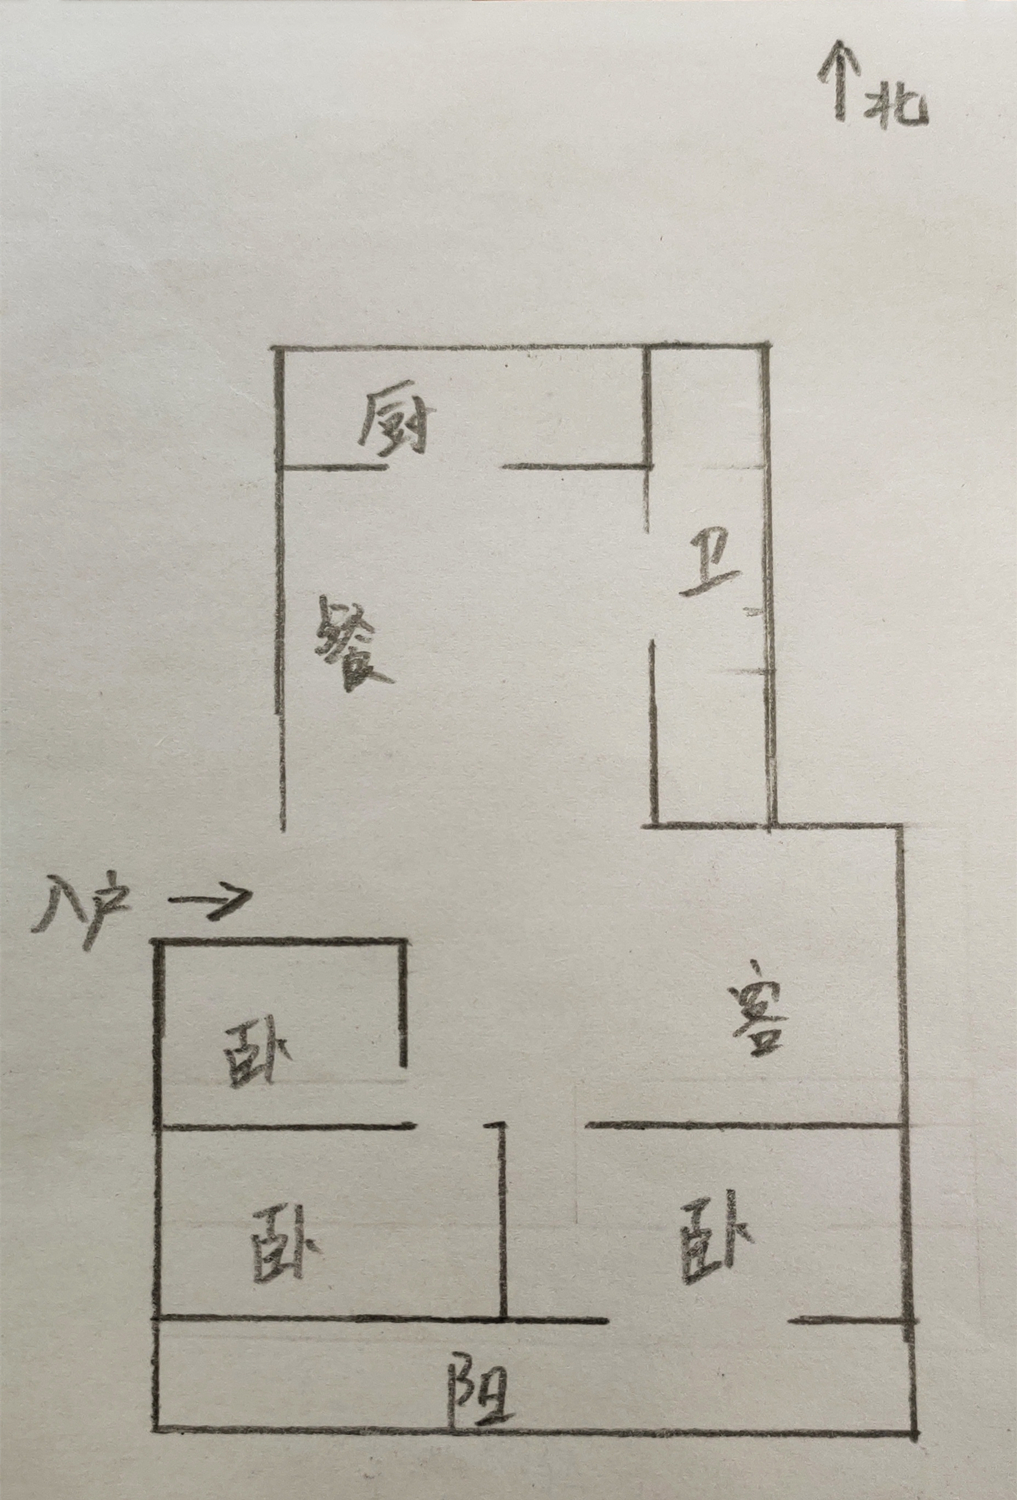 北
厨
卫
餐
入户
客
卧
卧
卧
阳